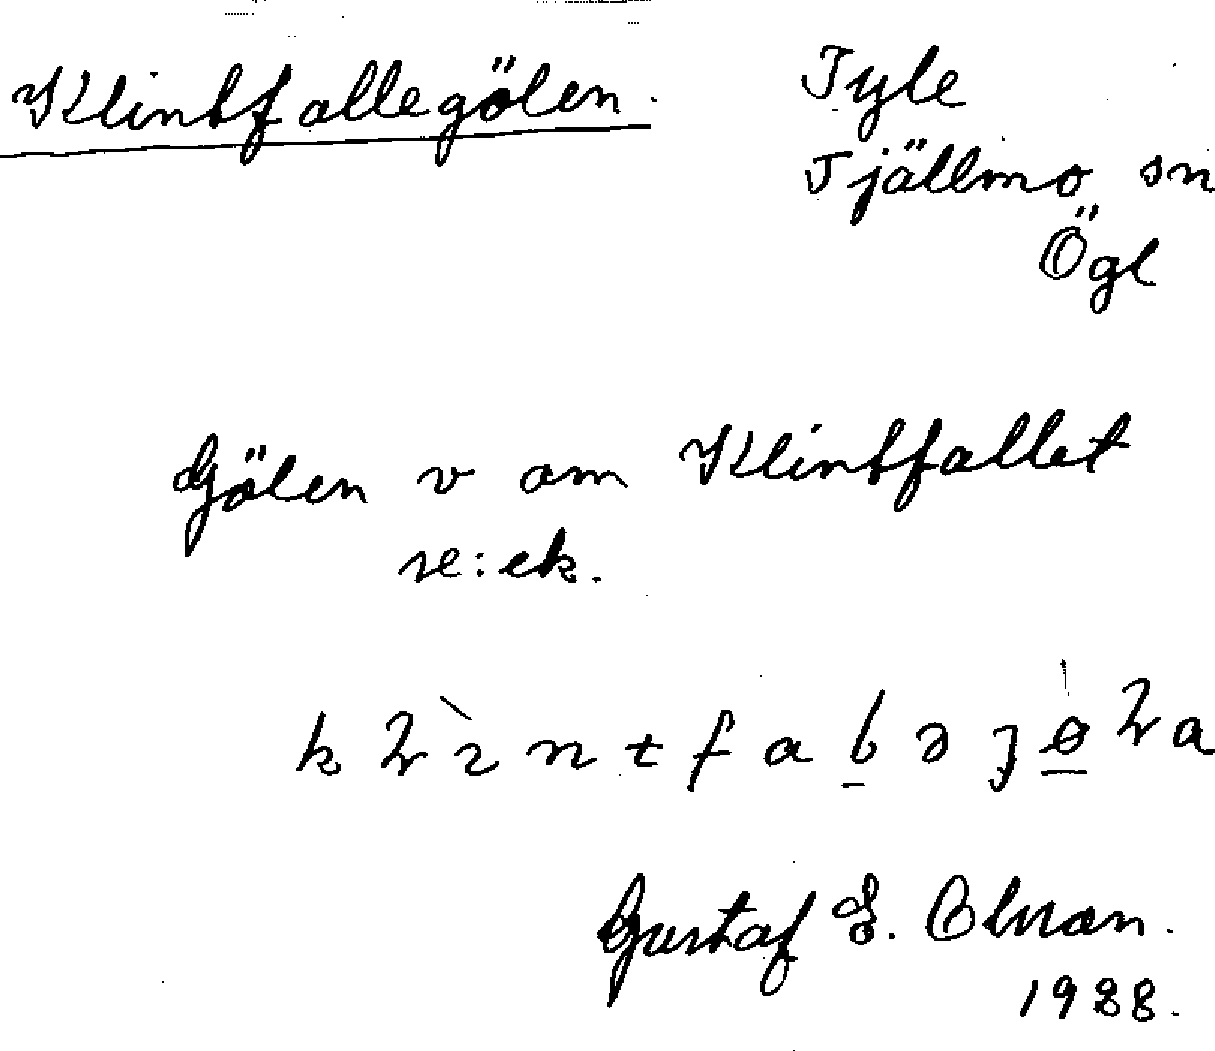 Klintfallegölen. Tyle
Tjällmo sn
Ögl
Gölen v om Klintfallet
se: ek.
Gustaf E. Olsson.
1988.